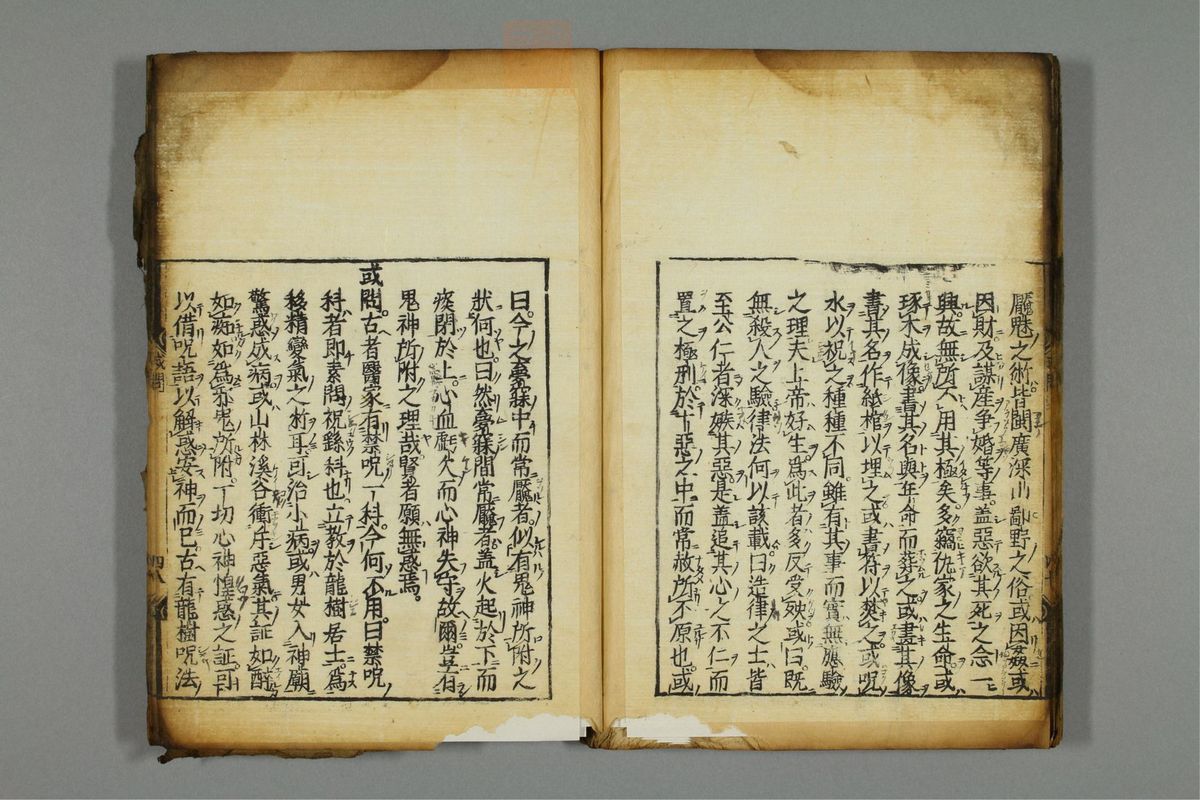 魘魅之術皆閩廣深山鄙野之俗或因姦或
因財及謀産爭婚等事盖惡欲其死之念一
興故無所不用其極矣多竊仇家之生命或
琢木成像書其名與年命而葬之或畫其像
書其名作紙棺以埋之或書符以焚之或呪
水以祝之種種不同雖有其事而實無應驗
之理夫上帝好生爲此者多反受殃或曰既
無殺人之驗律法何以該載曰造律之士皆
至公仁者深嫉其惡是盖追其心之不仁而
置之極刑於十惡之中而常赦所不原也或
曰今之夢寐中而常魘者似有鬼神所附之
狀何也曰然夢寐間常魘者盖火起於下而
痰閉於上心血虧欠而心神失守故爾豈有
鬼神所附之理哉賢者願無惑焉
或問古者醫家有禁呪一科今何不用曰禁呪
科者即素問祝繇科也立教於龍樹居士爲
移精變氣之術耳可治小病或男女入神廟
驚惑成病或山林溪谷衝斥惡氣其証如醉
如痴如爲邪鬼所附一切心神惶惑之証可
以借呪語以解惑安神而已古有龍樹呪法